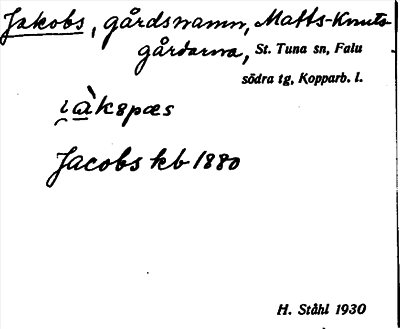 Jakobs, gårdsnamn, Matts-Knuts-
gårdarna, St. Tuna sn, Falu
södra tg, Kopparb. l.
Jacobs kb 1880
H. Ståhl 1930